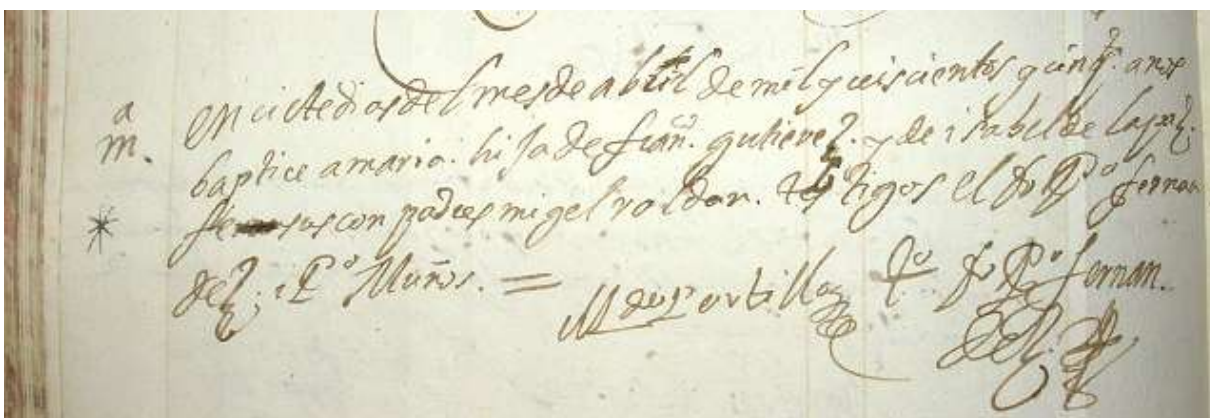 a
m.
en siete dias del mes de abril de mil y seiscientos y cinq.ta años
baptice a maria. hija de fran.co gutierez. y de isabel de la
sus con padres migel roldan. testigos el P.o fernan
dez. i P.o Muños. =
M de Portillo t.o P.o fernan.
dez.